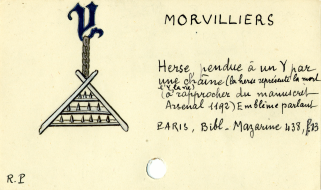 Y
MORVILLIERS
Herse pendue à un Y par
une chaîne (la herse représente la mort
et Y la vie)
(à rapprocher du manuscrit
Arsenal 1192) Emblème parlant
PARIS, Bibl. Mazarine 438, f°13
R.P